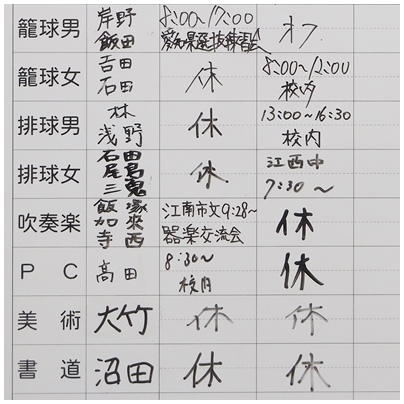 籠球男 岸野 8:00～17:00 オフ
飯田 愛知県選抜練習会
籠球女 吉田 休 8:00～12:00
石田 校内
排球男 林 休 13:00～16:30
浅野 校内
排球女 石田 休 江西中
尾島 7:30～
三鬼
吹奏楽 飯塚 江南市文9:28～ 休
加來 器楽交流会
寺西
PC 高田 8:30～ 休
校内
美術 大竹 休 休
書道 沼田 休 休